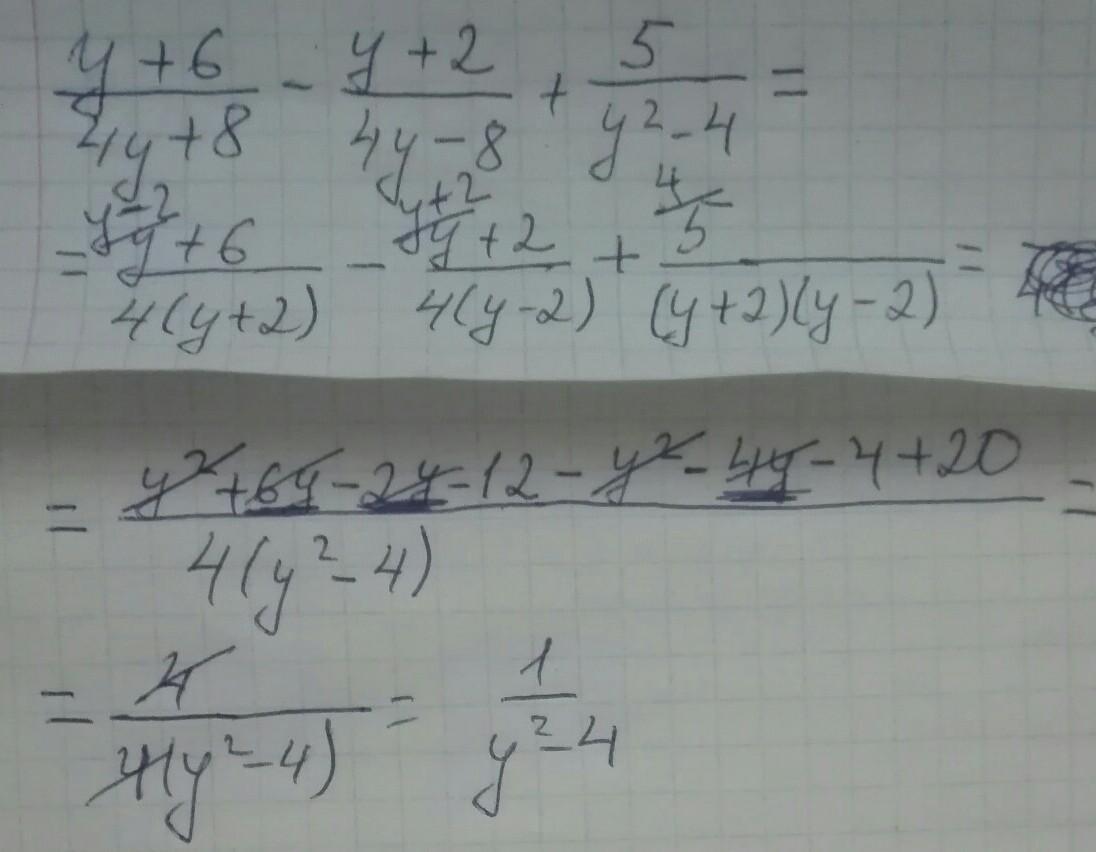 (y + 6)/(4y + 8) - (y + 2)/(4y - 8) + 5/(y² - 4) =
y-2 y+2 4
= (y + 6)/(4(y+2)) - (y + 2)/(4(y-2)) + 5/((y+2)(y-2)) =
= (y² + 6y - 2y - 12 - y² - 4y - 4 + 20)/(4(y² - 4)) =
= 4/(4(y² - 4)) = 1/(y² - 4)